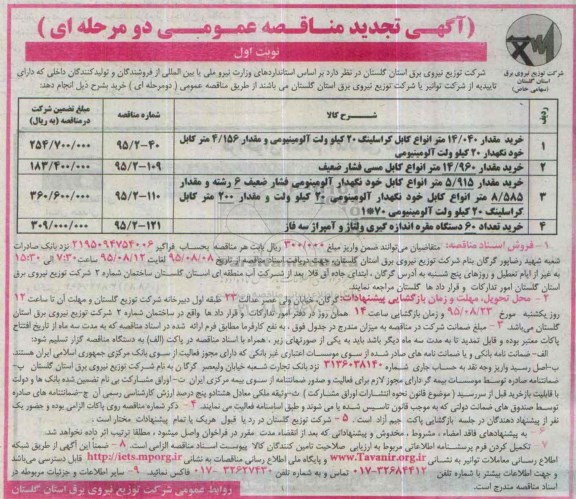 (آگهی تجدید مناقصه عمومی دو مرحله ای)
نوبت اول
شرکت توزیع نیروی برق
استان گلستان
(سهامی خاص)
شرکت توزیع نیروی برق استان گلستان در نظر دارد بر اساس استانداردهای وزارت نیرو ملی یا بین المللی از فروشندگان و تولیدکنندگان داخلی که دارای
تاییدیه از شرکت توانیر یا شرکت توزیع نیروی برق استان گلستان می باشند از طریق مناقصه عمومی (دومرحله ای) خرید بشرح ذیل انجام دهد:
ردیف شرح کالا شماره مناقصه مبلغ تضمین شرکت درمناقصه (به ریال)
۱ خرید مقدار ۱۴/۰۴۰ متر انواع کابل کراسلینگ ۲۰ کیلو ولت آلومینیومی و مقدار ۴/۱۵۶ متر کابل
خود نگهدار ۲۰ کیلو ولت آلومینیومی ۹۵/۲-۴۰ ۲۵۴/۷۰۰/۰۰۰
۲ خرید مقدار ۱۴/۹۶۰ متر انواع کابل مسی فشار ضعیف ۹۵/۲-۱۰۹ ۱۸۳/۴۰۰/۰۰۰
۳ خرید مقدار ۵/۹۱۵ متر انواع کابل خود نگهدار آلومینومی فشار ضعیف ۶ رشته و مقدار
۸/۵۸۵ متر انواع کابل خود نگهدار آلومینومی ۲۰ کیلو ولت و مقدار ۲۰۰ متر کابل
کراسلینگ ۲۰ کیلو ولت آلومینیومی ۷۰*۱ ۹۵/۲-۱۱۰ ۳۶۰/۶۰۰/۰۰۰
۴ خرید تعداد ۶۰ دستگاه مقره اندازه گیری ولتاژ و آمپراژ سه فاز ۹۵/۲-۱۲۱ ۳۰۹/۰۰۰/۰۰۰
۱- فروش اسناد مناقصه: متقاضیان می توانند ضمن واریز مبلغ ۳۰۰/۰۰۰ ریال بابت هر مناقصه بحساب فراگیر ۲۱۹۵۰۹۴۷۵۴۰۰۶ نزد بانک صادرات
شعبه شهید رضاپور گرگان بنام شرکت توزیع نیروی برق استان گلستان، جهت دریافت اسناد مناقصه از تاریخ ۹۵/۰۸/۰۸ لغایت ۹۵/۰۸/۱۲ ساعت ۷:۳۰ الی ۱۵:۳۰
به غیر از ایام تعطیل و روزهای پنج شنبه به آدرس گرگان، ابتدای جاده آق قلا بعد از شرکت آب منطقه ای استان گلستان ساختمان شماره ۲ شرکت توزیع نیروی برق
استان گلستان امور تدارکات و قرار داد ها گلستان مراجعه نمایند.
۲- محل تحویل، مهلت و زمان بازگشایی پیشنهادات: گرگان، خیابان ولی عصر عدالت ۲۳ طبقه اول دبیرخانه شرکت توزیع گلستان و مهلت آن تا ساعت ۱۲
روز یکشنبه مورخ ۹۵/۰۸/۲۳ و زمان بازگشایی ساعت ۱۴ همان روز در دفتر امور تدارکات و قرار داد ها واقع در ساختمان شماره ۲ شرکت توزیع نیروی برق استان
گلستان می‌باشد. ۳- مبلغ ضمانت شرکت در مناقصه به میزان مندرج در جدول فوق، به نفع کارفرما مطابق فرم ارائه شده در اسناد مناقصه که به مدت سه ماه از تاریخ افتتاح
پاکات معتبر بوده و قابل تمدید تا به مدت سه ماه دیگر باشد باید به یکی از صورتهای زیر، همراه با اسناد مناقصه در پاکت (الف) به دستگاه مناقصه گزار تسلیم شود:
الف- ضمانت نامه بانکی و یا ضمانت نامه های صادر شده از سوی موسسات اعتباری غیر بانکی که دارای مجوز فعالیت از سوی بانک مرکزی جمهوری اسلامی ایران هستند
ب- اصل رسید واریز وجه نقد به حساب جاری شماره ۳۱۳۶۰۳۸۱۴۰ نزد بانک تجارت شعبه خیابان ولیعصر گرگان به نام شرکت توزیع نیروی برق استان گلستان پ-
ضمانتنامه صادره توسط موسسات بیمه گر دارای مجوز لازم برای فعالیت و صدور ضمانتنامه از سوی بیمه مرکزی ایران ت- اوراق مشارکت بی نام تضمین شده بانک ها و دولت
با قابلیت بازخرید قبل از سررسید (موضوع قانون نحوه انتشارات اوراق مشارکت) ث- وثیقه ملکی معادل هشتاد و پنج درصد ارزش کارشناسی رسمی آن ج- ضمانتنامه های صادره
توسط صندوق های ضمانت دولتی که به موجب قانون تاسیس شده یا می شوند و طبق اساسنامه فعالیت می نمایند. ۴- ذکر شماره مناقصه روی پاکات الزامی بوده و حضور یک
نفر از پیشنهاد دهندگان در جلسه بازگشایی پاکت سوم آزاد است. ۵- شرکت توزیع گلستان در رد یا قبول هریک یا تمام پیشنهادات مختار است.
۶- به پیشنهادهای فاقد امضاء، مشروط، مخدوش و پیشنهاداتی که بعد از انقضاء مدت مقرر در فراخوان واصل میشود، مطلقا ترتیب اثر داده نخواهد شد.
۷- تکمیل کردن فرم پرسشنامه اطلاعاتی مربوط به ارزیابی صلاحیت تامین کنندگان کالا پیوست اسناد مناقصه الزامی است. ۸- ضمناً این آگهی از طریق شبکه
اطلاع رسانی معاملات توانیر به نشانی www.Tavanir.org و پایگاه ملی اطلاع رسانی مناقصات به نشانی http://iets.mporg.ir قابل دسترسی می‌باشد
و جهت اطلاعات بیشتر با شماره تلفن ۳۲۶۸۴۴۱۲-۰۱۷ تماس و به شماره تلفن ۳۲۶۲۷۴۳۰-۰۱۷ فاکس نمائید. ۹- سایر اطلاعات و جزئیات مربوطه در
اسناد مناقصه مندرج است.
روابط عمومی شرکت توزیع نیروی برق استان گلستان